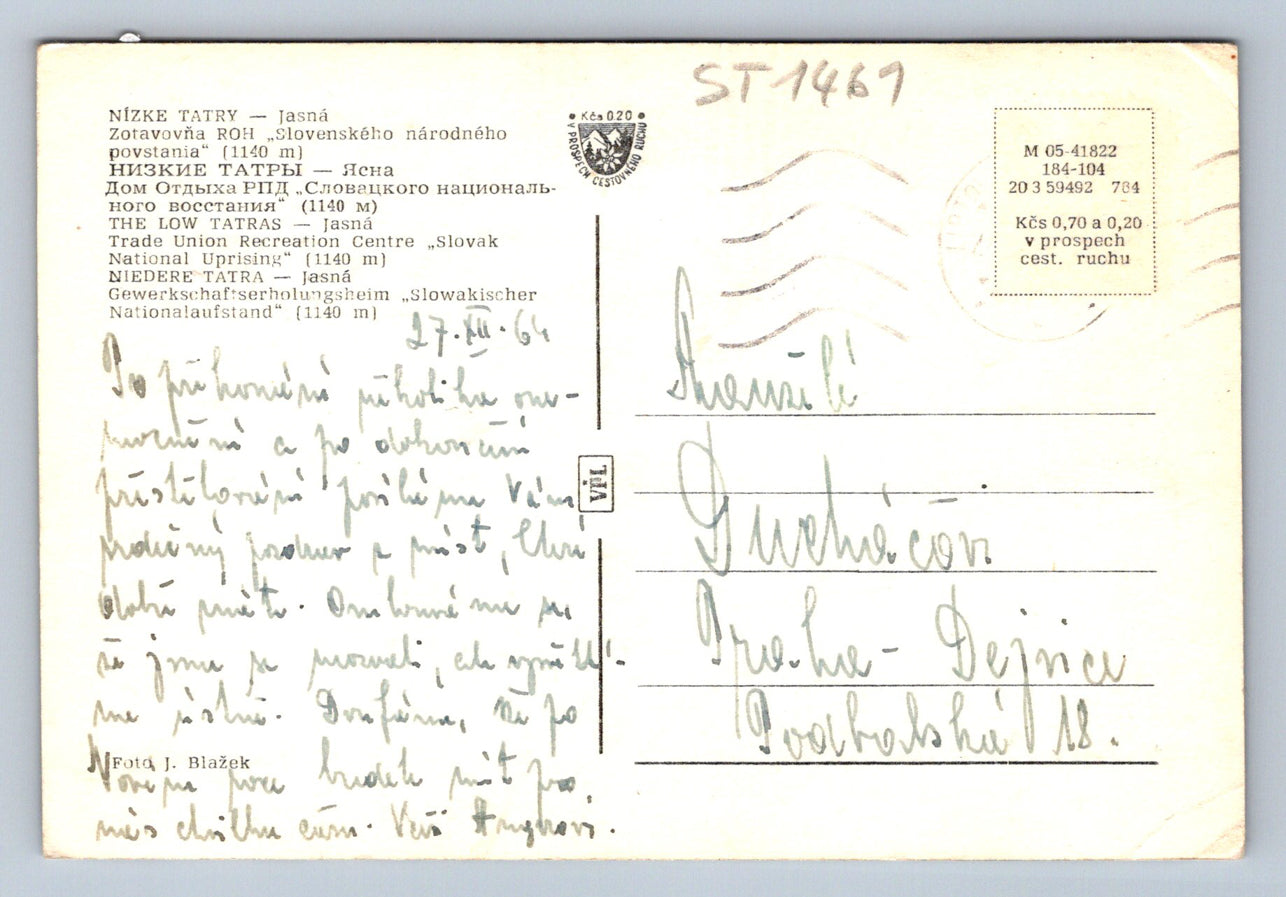 ST 1461
NÍZKE TATRY — Jasná
Zotavovňa ROH „Slovenského národného
povstania“ (1140 m)
НИЗКИЕ ТАТРЫ — Ясна
Дом Отдыха РПД „Словацкого националь-
ного восстания“ (1140 м)
THE LOW TATRAS — Jasná
Trade Union Recreation Centre „Slovak
National Uprising“ (1140 m)
NIEDERE TATRA — Jasná
Gewerkschaftserholungsheim „Slowakischer
Nationalaufstand“ (1140 m)
• Kčs 0.20 •
V PROSPECH CESTOVNÉHO RUCHU
M 05-41822
184-104
20 3 59492 764
Kčs 0,70 a 0,20
v prospech
cest. ruchu
27. XII. 64
Po překonání několika one-
mocnění a po dokončení
přistěhování posíláme Vám
srdečný pozdrav z míst,
dobře
že jsme se neozvali, ale vysvětlí-
me ústně. Doufáme, že po
Novém roce budete mít pro
nás chvilku času. Vaši
Foto J. Blažek
VTL
Manželé
Ducháčovi
Praha - Dejvice
Podbabská 18.